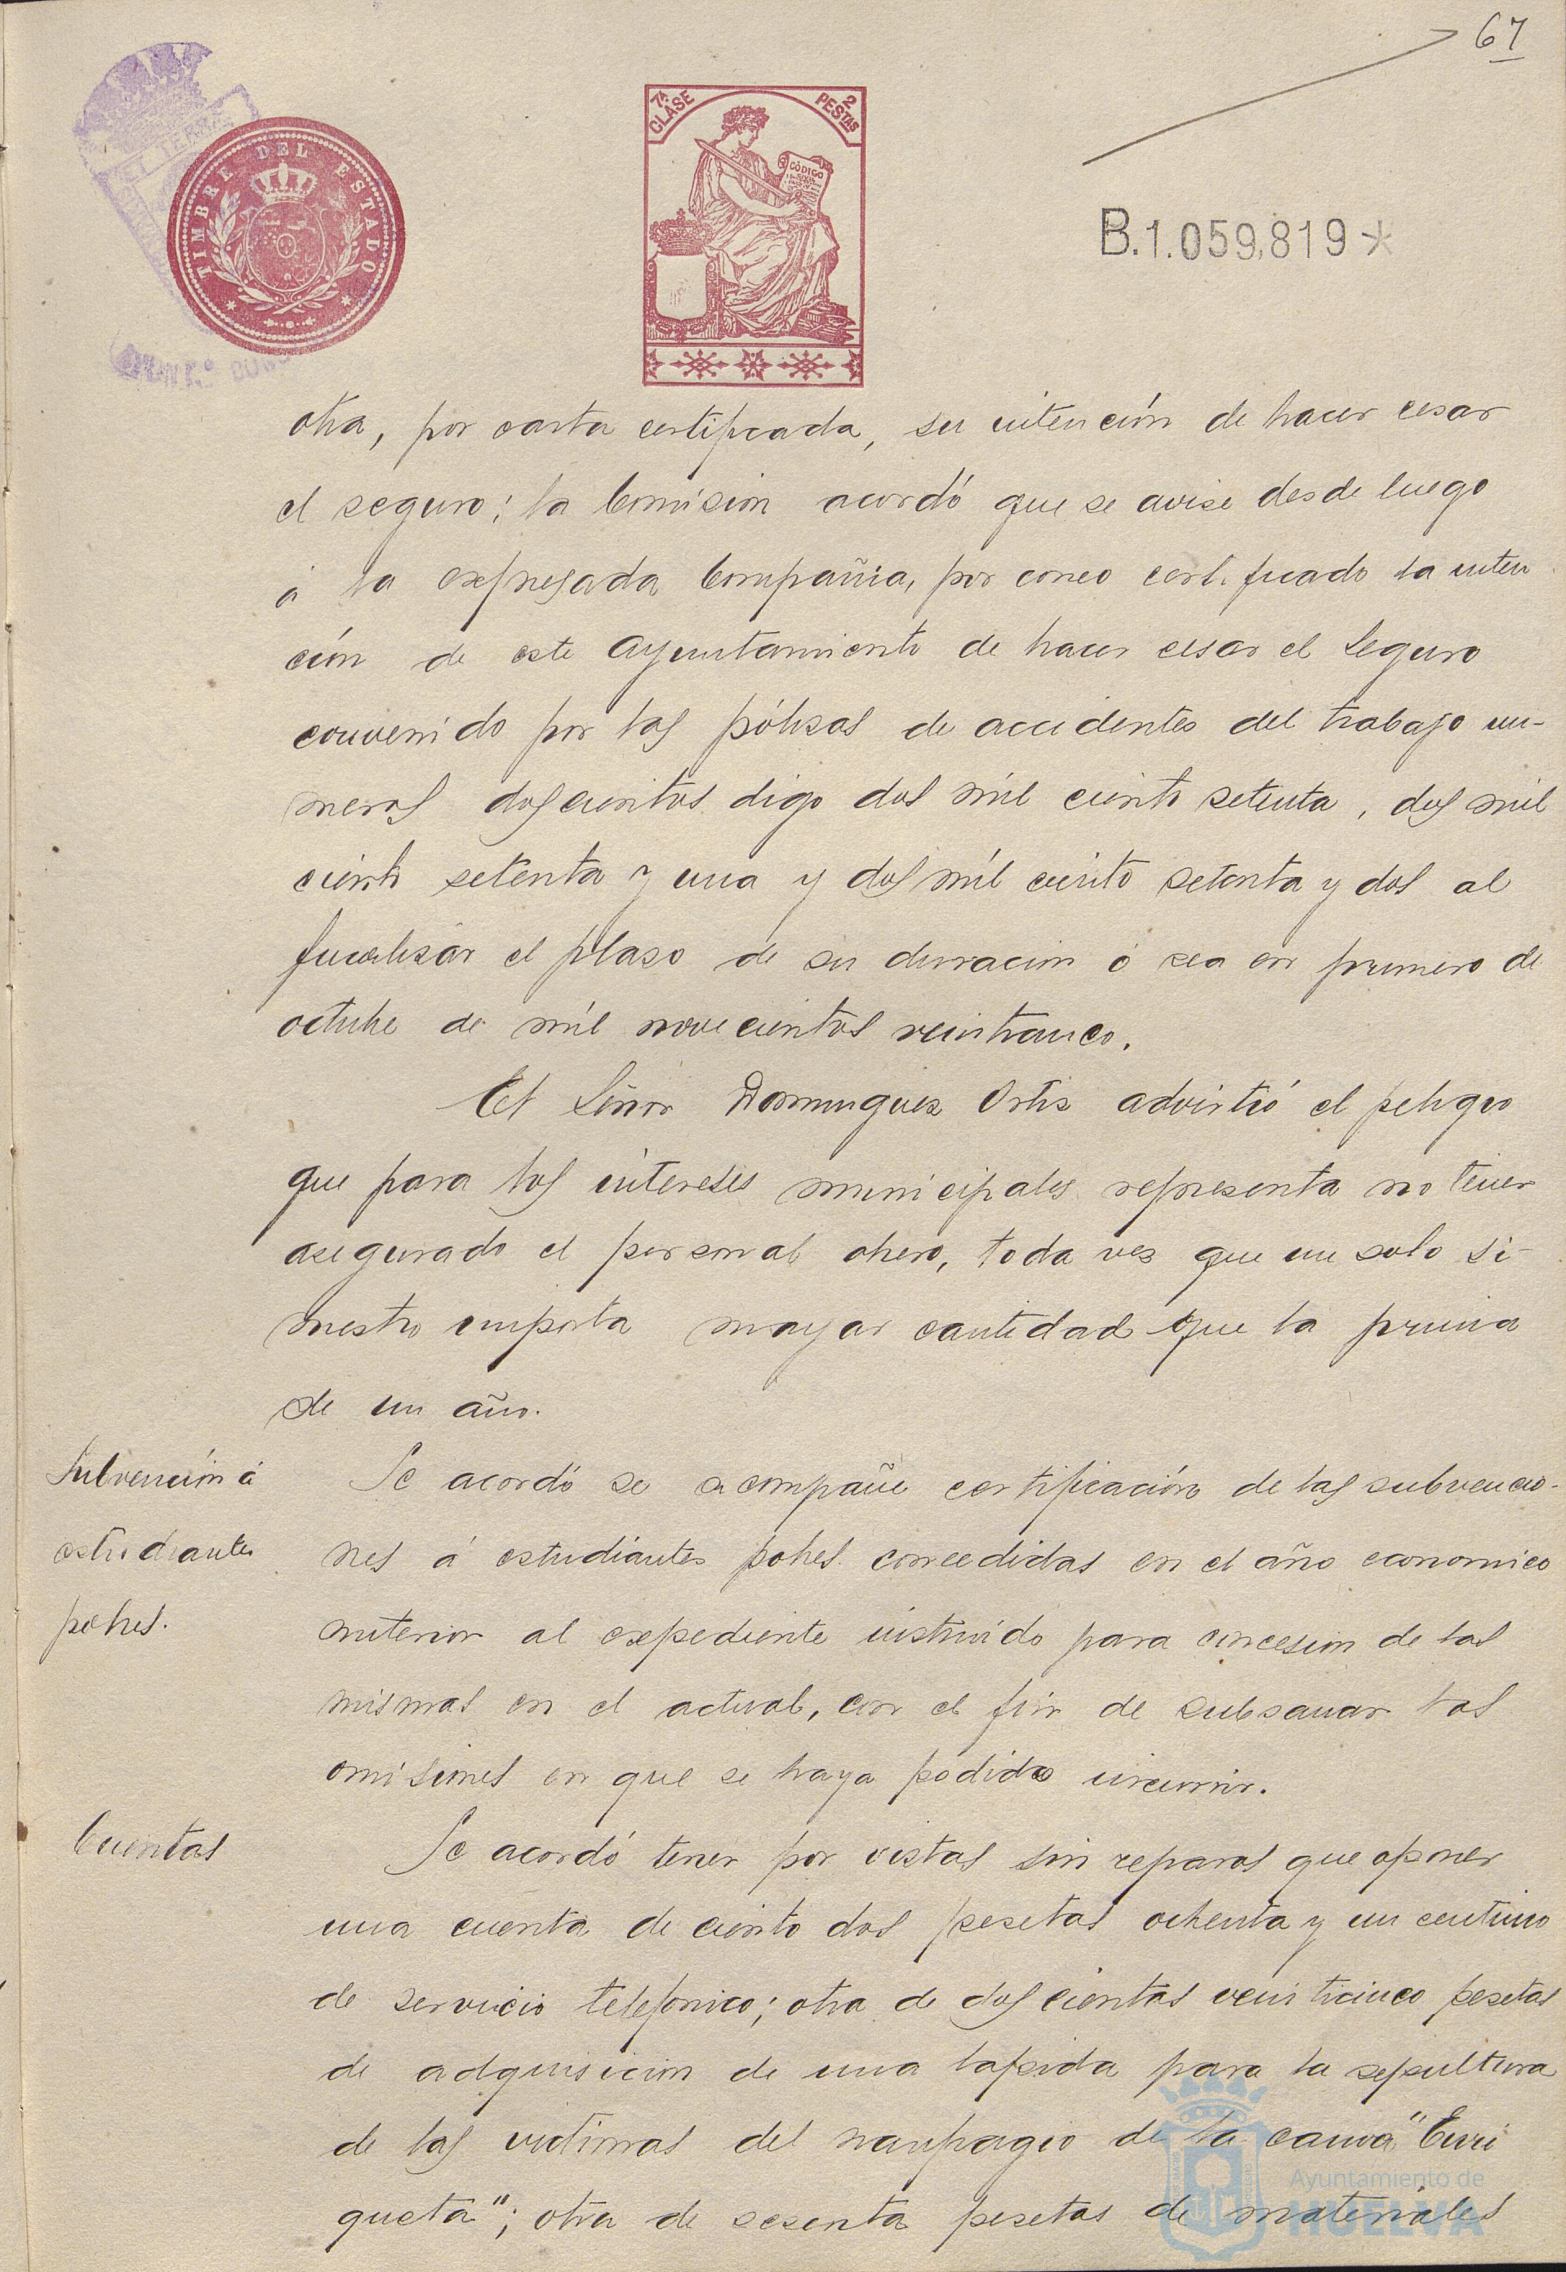 67
TIMBRE DEL ESTADO
7ª CLASE
2 PESTAS
CÓDIGO
B.1.059,819*
otra, por carta certificada, su intención de hacer cesar
el seguro; la Comisión acordó que se avise desde luego
á la expresada Compañia, por correo certificado la inten
ción de este Ayuntamiento de hacer cesar el Seguro
convenido por las pólizas de accidentes del trabajo nú-
meros doscientos digo dos mil ciento setenta, dos mil
ciento setenta y una y dos mil ciento setenta y dos al
finalizar el plazo de su duracion ó sea en primero de
octubre de mil novecientos veinticinco.
El Señor Dominguez Ortiz advirtió el peligro
que para los intereses municipales representa no tener
asegurado el personal obrero, toda vez que un solo si-
niestro importa mayor cantidad que la prima
de un año.
Subvención á
estudiantes
pobres.
Se acordó se acompañe certificación de las subvencio-
nes á estudiantes pobres concedidas en el año economico
anterior al expediente instruido para concesion de las
mismas en el actual, con el fin de subsanar las
omisiones en que se haya podido incurrir.
Cuentas
Se acordó tener por vistas sin reparos que oponer
una cuenta de ciento dos pesetas ochenta y un centimo
de servicio telefonico; otra de doscientas veinticinco pesetas
de adquisicion de una lapida para la sepultura
de las victimas del naufragio de la canoa "Enri
queta"; otra de sesenta pesetas de materiales
Ayuntamiento de
HUELVA